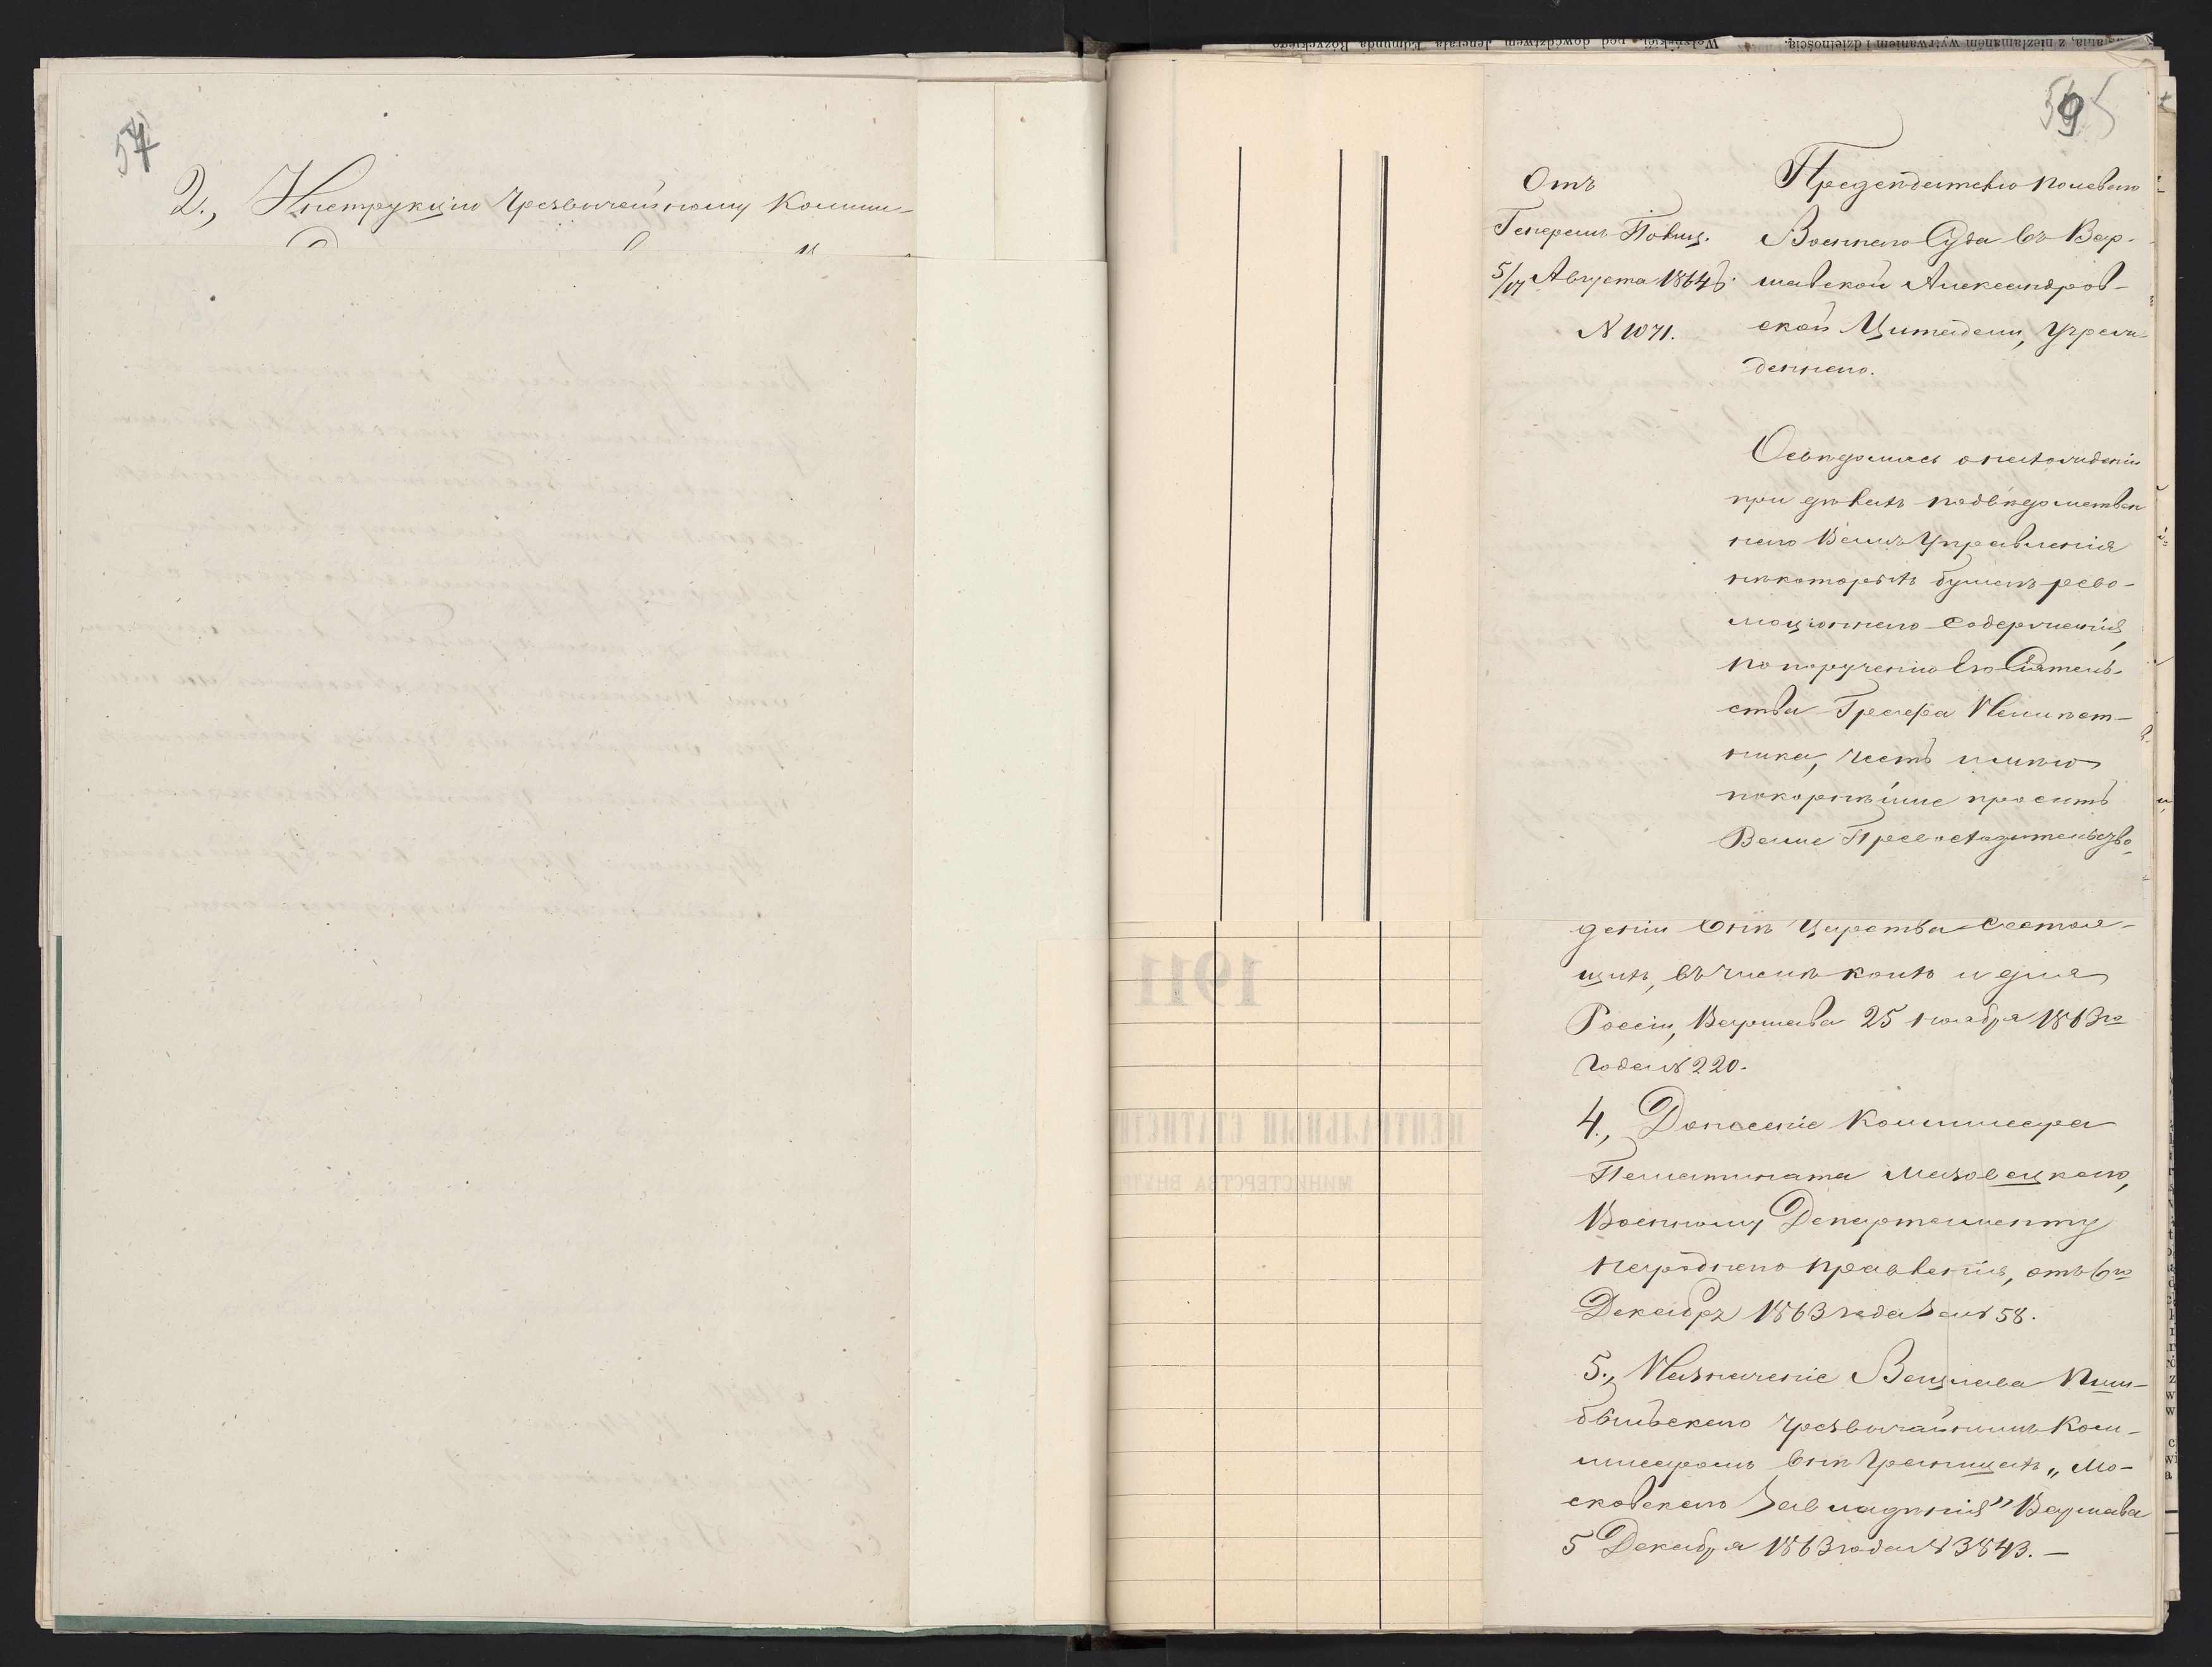 57
2., Инструкцію чрезвычайному Комми-
59
Отъ
Генералъ-Полиц.
5/17 Августа 1864 г.
N 1071.
Предсѣдателю полеваго
Военнаго Суда въ Вар-
шавской Александров-
ской Цитадели, Учреж-
деннаго.
Освѣдомясь о нахожденіи
при дѣлахъ подвѣдомствен
наго Вамъ Управленія
нѣкоторыхъ бумагъ рево-
люціоннаго содержанія,
по порученію Его Сіятель-
ства Графа Намѣст-
ника, честь имѣю
покорнѣйше просить
Ваше Превосходительство,
деніи внѣ Царства состоя-
щихъ, въ числѣ коихъ и для
Россіи, Варшава 25 ноября 1863го
года N 220.
4., Донесеніе Коммиссара
Палатината Мазовецкаго,
Военному Департаменту
народнаго правленія, отъ 6го
Декабря 1863 года за N 58.
5., Назначеніе Вацлава Пши-
быльскаго чрезвычайнымъ Ком-
миссаромъ внѣ границахъ „Мо-
сковскаго Завладѣнія" Варшава
5 Декабря 1863 года N 3843. —
1911
ЦЕНТРАЛЬНЫЙ СТАТИСТИ
МИНИСТЕРСТВА ВНУТР
Wołyńskiej, pod dowództwem Jenerała Edmunda Różyckiego
z niezłamaném wytrwaniem i dzielnością,